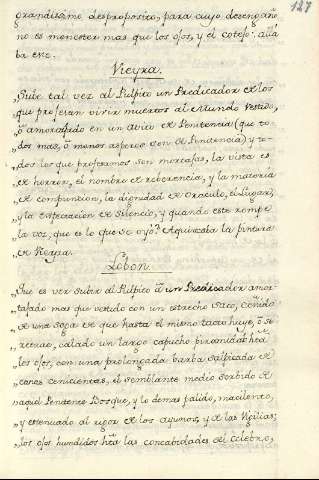 127
grandissimo desproposito, para cuyo desengaño
no es menester mas que los ojos, y el cotejo: alla
ba este.
Vieyra.
„Sube tal vez al Pulpito un Predicador de los
que profesan vivir muertos al Mundo vestido,
„ò amortajado en un avito de Penitencia (que to-
„dos mas, ò menos aspero son de Penitencia) y to-
„dos los que profesamos son mortajas, la vista es
„de horror, el nombre de reberencia, y la materia
„de compuncion, la dignidad de oraculo, el Lugar,
„y la espectacion de silencio, y quando este rompe
„la voz, que es lo que se oyò? Aqui acaba la pintura
„de Vieyra.
Lobon.
„Que es ver subir al Pulpito un Predicador amor-
„tajado mas que vestido con un estrecho saco, ceñido
„de una soga de que hasta el mismo tacto huye, ò se
„retrae, calado un largo capucho piramidal hta
„los ojos, con una prolongada barba salpicada de
„canas cenicientas, el semblante medio sorbido de
„aquel Penitente Bosque, y lo demas palido, macilento,
„y extenuado al rigor de los ayunos, y de las Vigilias;
„los ojos hundidos hta las concabidades del Celebro,